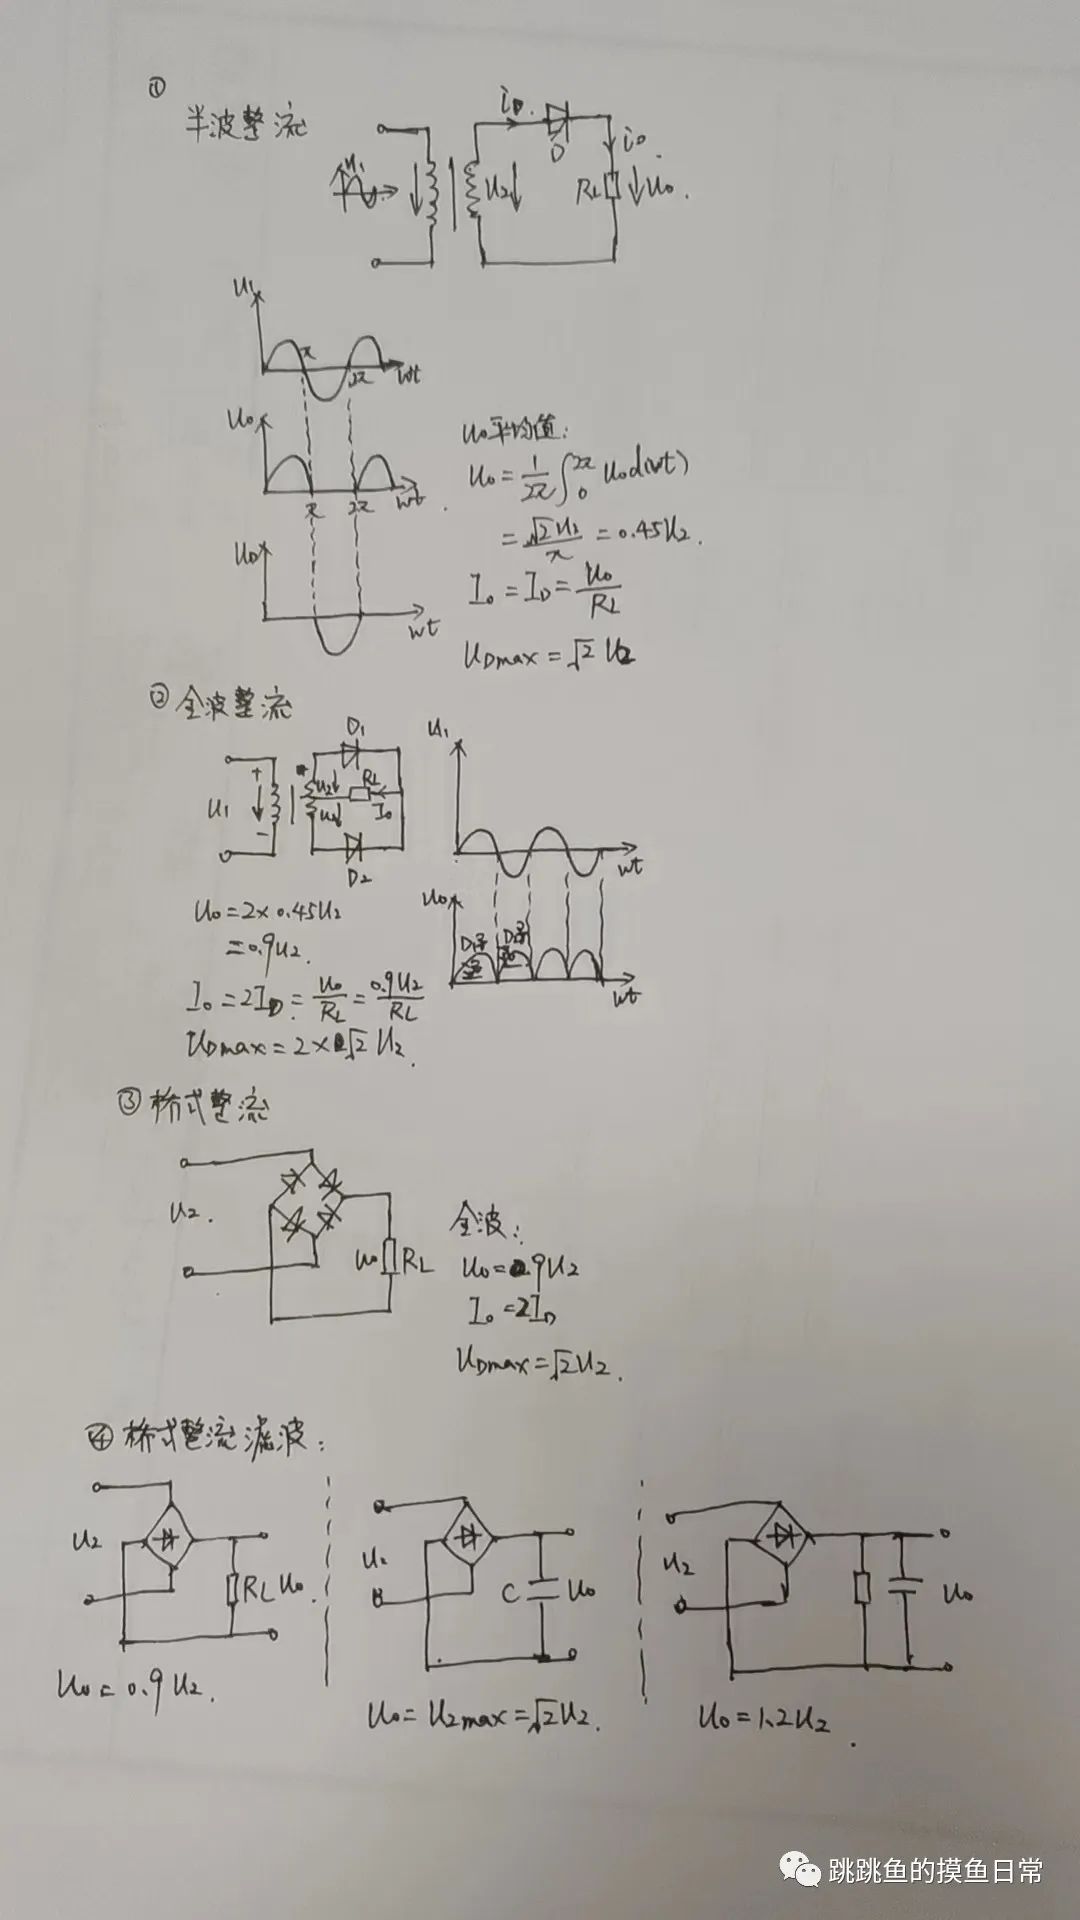 ①
半波整流
iD.
D
io.
U1
U2
RL
Uo.
U1
π
2π
wt
Uo
π
2π
wt.
Uo
wt
Uo平均值:
Uo=1/2π∫0 2π Uod(wt)
=√2U2/π=0.45U2.
Io=ID=Uo/RL
UDmax=√2 U2
② 全波整流
D1
U1
+
U1
-
U2
RL
U2
Io
D2
wt
Uo
D1导
D导
wt
Uo=2×0.45U2
=0.9U2.
Io=2ID=Uo/RL=0.9U2/RL
UDmax=2×√2 U2.
③ 桥式整流
U2.
Uo
RL
全波:
Uo=0.9U2
Io=2ID
UDmax=√2U2.
④ 桥式整流滤波:
U2
RL
Uo.
Uo=0.9U2.
U2
C
Uo
Uo=U2max=√2U2.
U2
Uo
Uo=1.2U2.
跳跳鱼的摸鱼日常